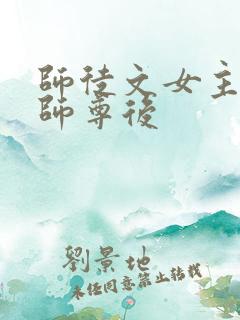 師徒文女主
師尊後
劉景地
未经同意禁止转载